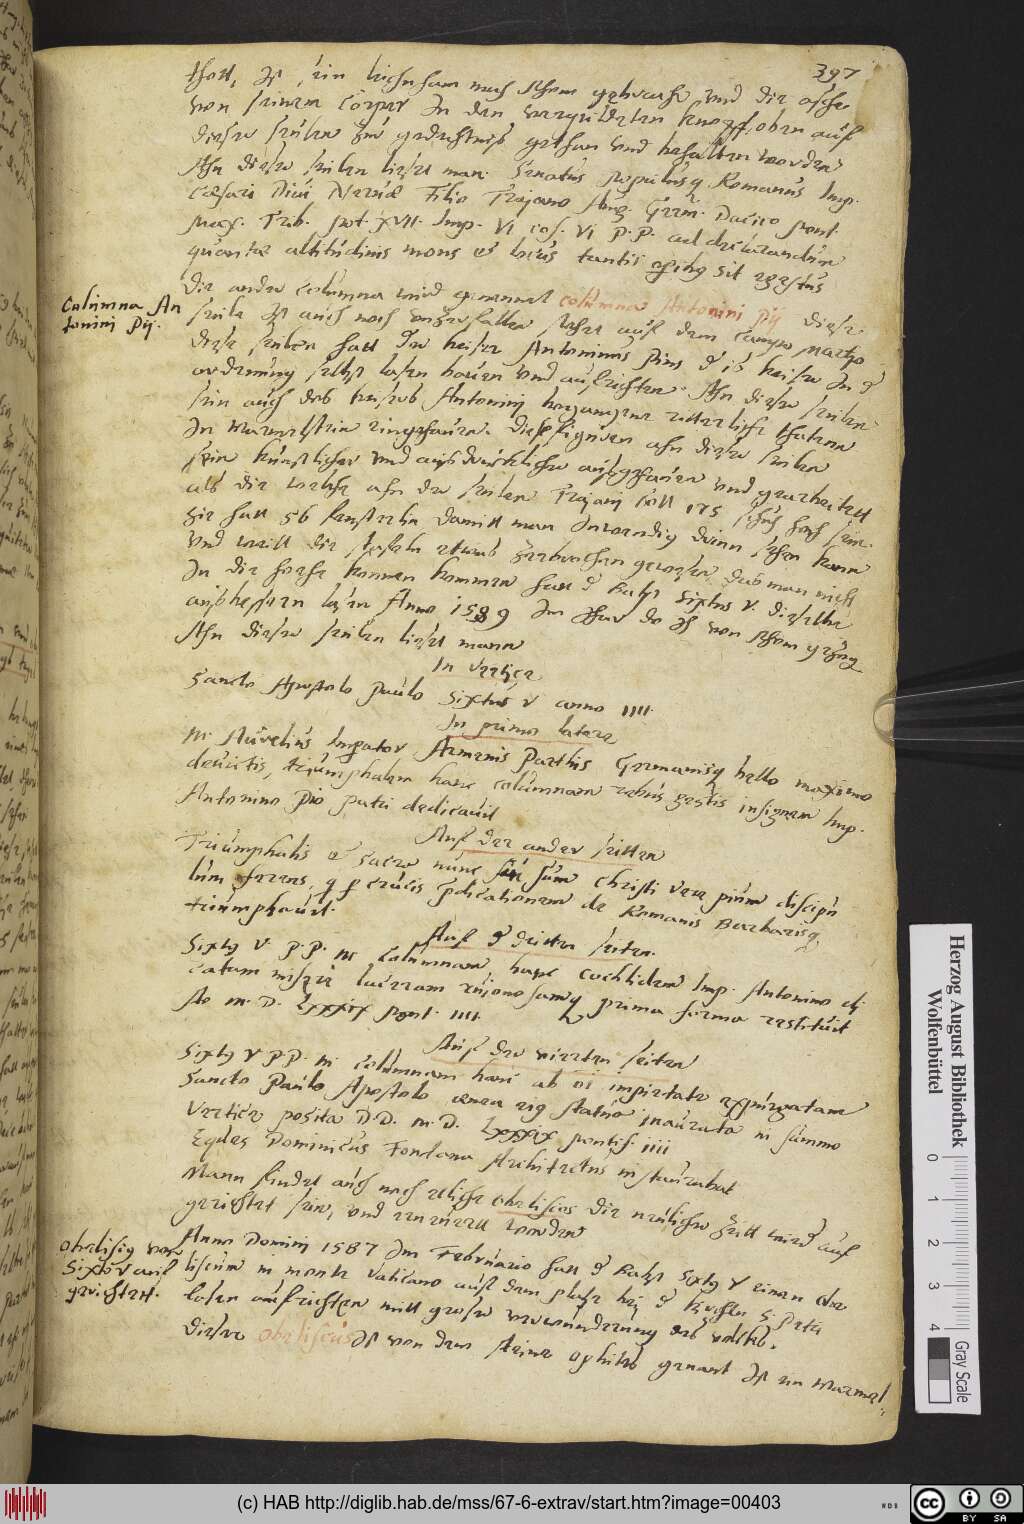 397
thatt, Ist sein leichnham nach Rhom gebracht vnd die asche
von seinem Cörper In den vergüldeten knopff, oben auff
dieser seülen zür gedechtnüß gethan vnd behalten worden
Ahn dieser seülen lieset man. Senatus populüsq Romanüs Imp.
Cæsari Diüi Nervæ Filio Trajano Aüg. Germ. Dacico pont.
Max. Trib. pot. XVII. Imp. VI cos. VI P. P. ad declarandüm
qüantæ altitüdinis mons et locüs tantis operibg sit egestüs
Die ander Columna wird genennet Columna Antonini Pij diese
Columna An
tonini Pij.
seüle ist auch noch vnzerfallen stehet auff dem Campo Martio
diese seülen hatt der keiser Antoninüs Piüs d 16 keiser In d
ordenüng selbst lasen hauen vnd aufrichten. Ahn dieser seülen
sein aüch des keisers Antonini begangene ritterliche thaten
In Marmelstein eingehaüen. Diese figüren ahn dieser seülen
sein künstlicher vnd aüsdrücklicher aüßgehaüen vnd gearbeitett
als die welche ahn der seülen Trajani soll 175 schüch hoch sein
sie hatt 56 fensterln damitt man Inwendig darin sehen kann
vnd weill die staffeln etwas zerbrochen gewesen, das man nicht
In die hoehe konnen kommen hatt d Babst Sixtus V. dieselbe
aüsbessern lasen Anno 1589 Im Jhar do Ich von Rhom gezog
Ahn dieser seülen liesett mann
In Vertice
Sancto Apostolo Paülo Sixtus V anno IIII.
In primo latere
M. Aürelius Imperator Armenis Parthis Germanisq bello maximo
deüictis, triümphalem hanc colümnam rebüs gestis insignem Imp.
Antonino Pio patri dedicavit
Auf der ander seitten
Triümphalis et sacra nunc süm Christi vere piüm discipü
lüm ferens, q p crücis pdicationem de Romanis Barbarisq
triümphavit.
Auf d dritten seiten.
Sixtg V. P. P. M. Colümnam hanc cochlidem Imp. Antonino di
catam miserè laceram rüinosamq primæ formæ restitüit
Ao M. D. LXXXIX Pont. IIII.
Auf der vierten seiten
Sixtg V P. P. M. Colümnam hanc ab oi impietate expürgatam
Sancto Paülo Apostolo ænea eig statüa inaürata in sümmo
Vertice posita D. D. M. D. LXXXIX pontif. IIII
Eqües Dominicüs Fontana Architectüs instaürabat
Mann findet aüch noch etliche obeliscos die neülicher Zeitt wied auf
gerichtet sein, vnd erneüert worden
Anno Domini 1587 Im Februario hatt d Babst Sixtg V einen Obe
Obeliscg von
Sixto V auf
gerichtet.
liscüm in monte Vaticano aüff dem platz bej d kirchen S. Petri
lasen aufrichten mitt groser verwünderüng des volcks.
Dieser Obeliscüs Ist von dem steine ophites genant Ist ein Marmel
Herzog August Bibliothek
Wolfenbüttel
0 1 2 3 4
Gray Scale
(c) HAB http://diglib.hab.de/mss/67-6-extrav/start.htm?image=00403
WDB
CC BY SA